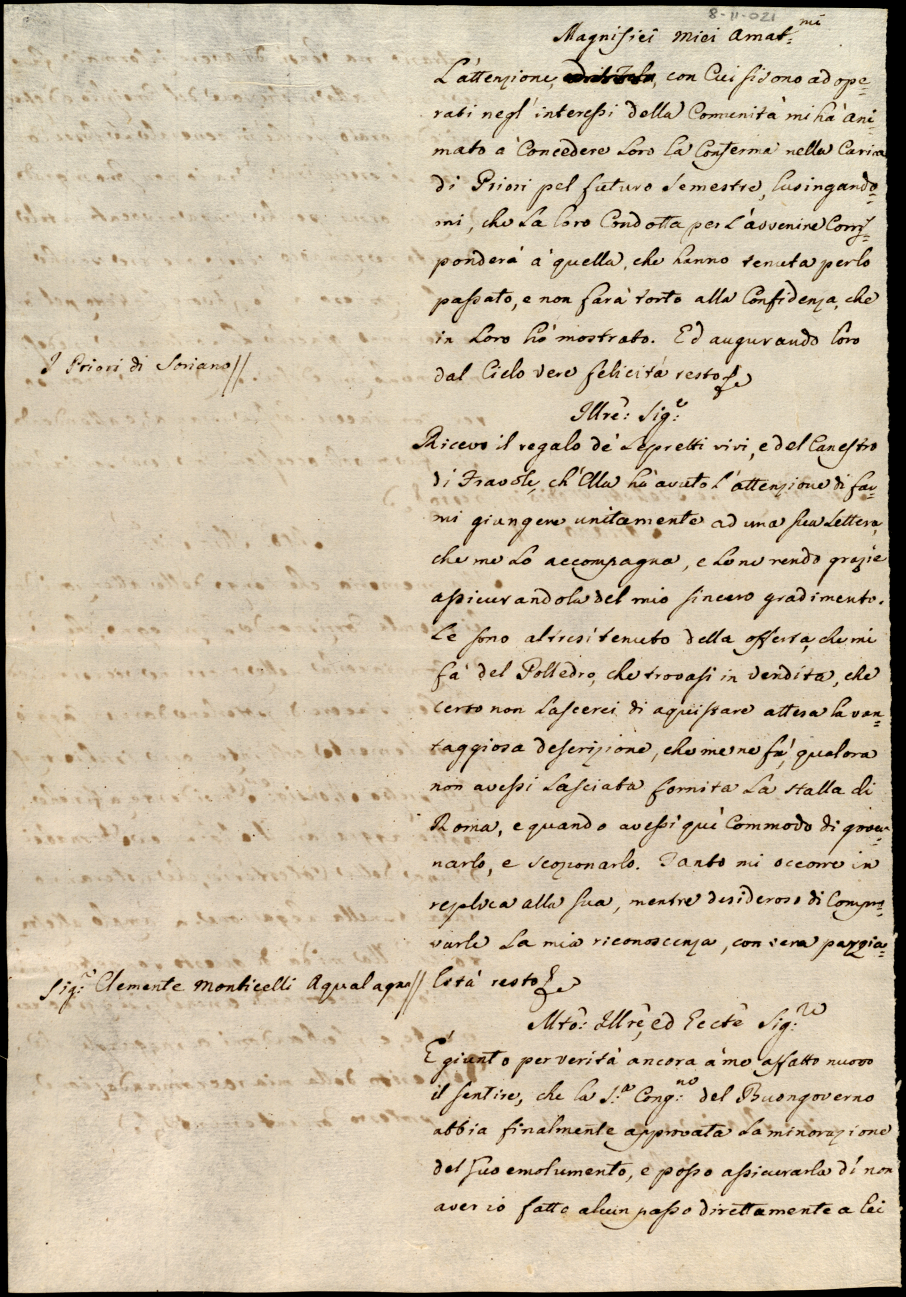 8-11-021
Magnifici Miei Amat:mi
L'attenzione, con Cui si sono adope-
rati negl'interessi della Comunità mi hà Ani-
mato à Concedere Loro La Conferma nella Carica
di Priori pel futuro Semestre, lusingando-
mi, che La loro Condotta per L'avvenire Corris-
ponderà à quella, che hanno tenuta perlo
passato, e non farà torto alla Confidenza, che
in Loro hò mostrato. Ed augurando loro
dal Cielo vere felicità resto
I Priori di Soriano//
Illre: Sig:e
Ricevo il regalo de' Lepretti vivi, e del Canestro
di Fravole, ch'Ella hà avuto L'attenzione di far-
mi giungere unitamente ad una sua Lettera,
che me Lo accompagna, e Le ne rendo grazie
assicurandola del mio sincero gradimento.
Le sono altresi tenuto della offerta, che mi
fà del Polledro, che trovasi in vendita, che
certo non Lascerei di aquistare attesa la van-
taggiosa descrizione, che me ne fà, qualora
non avessi Lasciata fornita La stalla di
Roma, e quando avessi quì Commodo di gover-
narlo, e scozonarlo. Tanto mi occorre in
replica alla sua, mentre desideroso di Compro-
varle La mia riconoscenza, con vera parzia-
Sig:r Clemente Monticelli Aqualagna//
lità resto
Mto: Illrè, ed Ecctè Sig:re
E' giunto per verità ancora à me affatto nuovo
il sentire, che la S:a Cong:ne del Buongoverno
abbia finalmente approvata La minorazione
del suo emolumento, e posso assicurarla di non
aver io fatto alcun passo direttamente a Lei